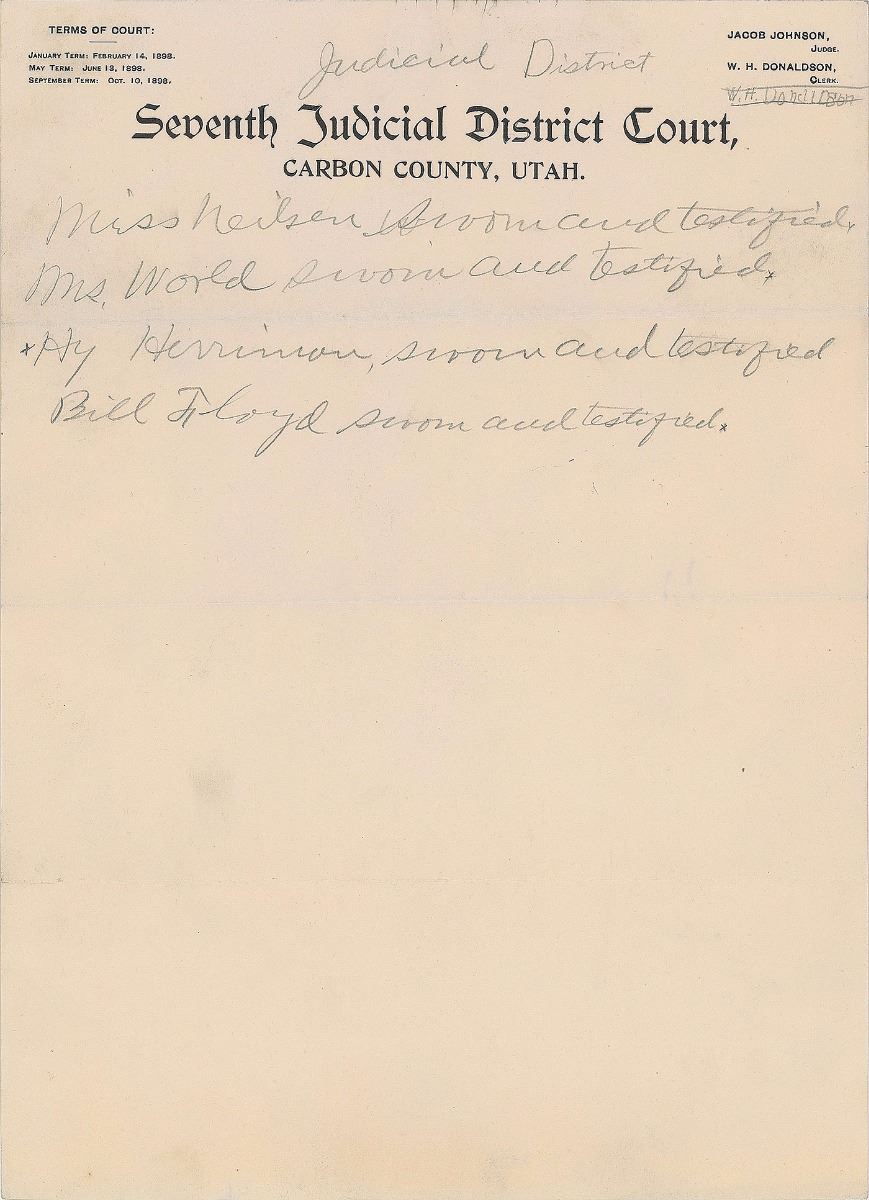 TERMS OF COURT:
JANUARY TERM: FEBRUARY 14, 1898.
MAY TERM: JUNE 13, 1898.
SEPTEMBER TERM: OCT. 10, 1898.
JACOB JOHNSON,
JUDGE.
W. H. DONALDSON,
CLERK.
W. H.
Judicial District
Seventh Judicial District Court,
CARBON COUNTY, UTAH.
Miss Neilsen, sworn and testified.
Mrs. World sworn and testified.
x Hy Herrimon, sworn and testified
Bill Floyd sworn and testified.